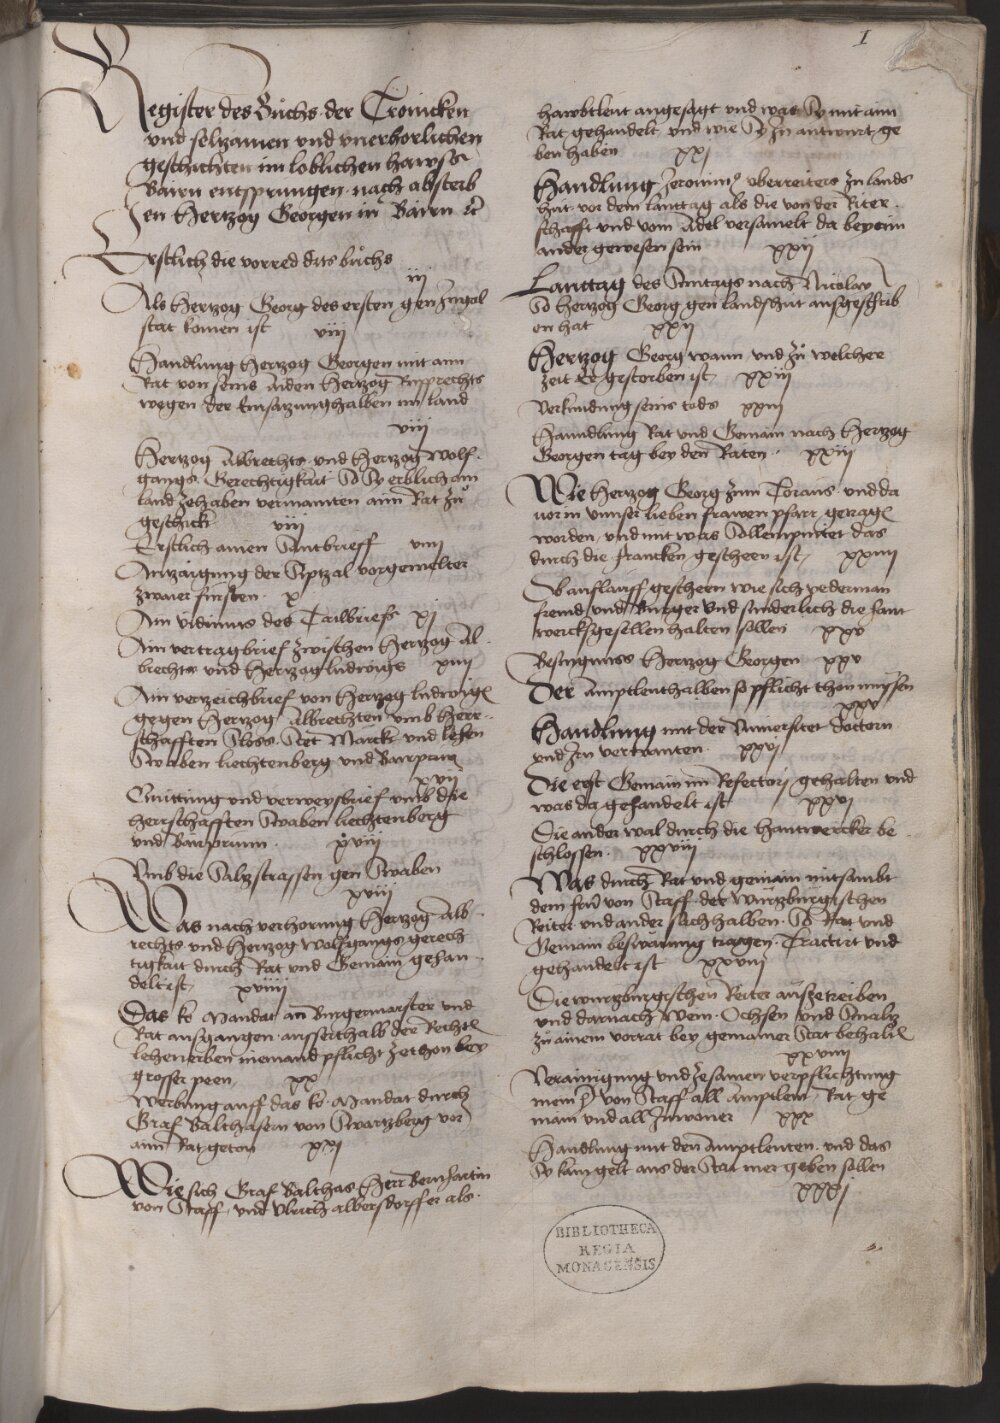 1
Register des Buchs der Cronicken
und seltzamen und unerhorlichen
geschichten im loblichen hawss
Bairn entsprungen nach absterb
en Hertzog Georgen in Bairn etc
Erstlich die vorred dits buchs
iij
Als Hertzog Georg des ersten gen Ingol
stat komen ist viij
Handlung Hertzog Georgen mit aim
Rat von seins Aiden Hertzog Rupprechts
wegen der Einsatzunghalben im land
viij
Hertzog Albrechts und Hertzog Wolf
gangs Gerechtigkait So Sy erblich am
land zehaben vermainten aim Rat zu
geschickt viij
Erstlich ainen Sentbrieff viiij
Anzaigung der Sipzal vorgemelter
zwaier fursten x
Ain vidimus des Tailbriefs xj
Ain vertragbrief zwischen Hertzog Al
brechts und Hertzog ludwigs xiiij
Ain verzeichbrief von Hertzog ludwigs
gegen Hertzog Albrechten umb Herr
schafften Sloss Stet Marckt und lehen
Swaben liechtenberg und Bairprunn
xvij
Quittung und verweysbrief umb die
herrschafften Swaben liechtenberg
und Bairprunn xviij
Umb die Saltzstrassen gen Swaben
xviij
Was nach verhorung Hertzog Alb
rechts und Hertzog Wolfgangs gerech
tigkait durch Rat und Gemain gehan
delt ist xviiij
Das ko Mandat an Burgermaister und
Rat ausgangen ausserthalb der Rechts
lehenerben niemand pflicht zethon bey
grosser peen xx
Werbung auff das ko Mandat durch
Graf Balthasern von Swartzberg vor
aim Rat geton xxj
Wie sich Graf Balthas Herr Bernhartin
von Stauff und Ulrich albersdorffer als
hawbtleut angesagt und was Sy mit aim
Rat gehandelt und wie Sy In antwurt ge
ben haben xxj
Handlung Jeronimus uberreiters zu lands
hut vor dem lanttag als die von der Riter
schafft und vom Adel versamelt da beyein
ander gewesen sein xxij
Lanttag des Sontags nach Nicolay
So hertzog Georg gen landshut ausgeschrib
en hat xxij
Hertzog Georg wann und zu welcher
zeit Er gestorben ist xxiij
Verkundung seins tods xxiij
Hanndlung Rat und Gemain nach Hertzog
Georgen tag bey den Räten xxiij
Wie hertzog Georg zum Toraus und da
vor in unnser lieben frawen pfarr getragen
worden und mit was Sollempnitet das
durch die francken gescheen ist xxiiij
Ob auflauff gescheen wie sich yederman
fremd und Burger und sunderlich die hant
wercksgesellen halten sollen xxv
Besingnuss Hertzog Georgen xxv
Der Amptleuthalben so pflicht thon mussen
xxv
Handlung mit der Universitet doctorn
und Irn verwanten xxvj
Die erst Gemain im Refectori gehalten und
was da gehandelt ist xxvj
Die ander wal durch die hantwercker be
schlossen xxviij
Was durch Rat und gemain mitsambt
dem herrn von Stauff der Wurtzburgischen
Reiter und ander sach halben So Rat und
Gemain beswärung tragen Tractirt und
gehandelt ist xxviij
Die wurtzburgischen Reiter auszetreiben
und darnach Wein Ochsen und Smaltz
zu ainem vorrat bey gemainer Stat behalten
xxviiij
Verainigung und zesamen verpflichtung
mein herrn von Stauff all Amptleut Rat ge
main und all Inwoner xxx
Handlung mit den Amptleuten und das
Sy kain gelt aus der Stat mer geben sollen
xxxj
BIBLIOTHECA
REGIA
MONACENSIS